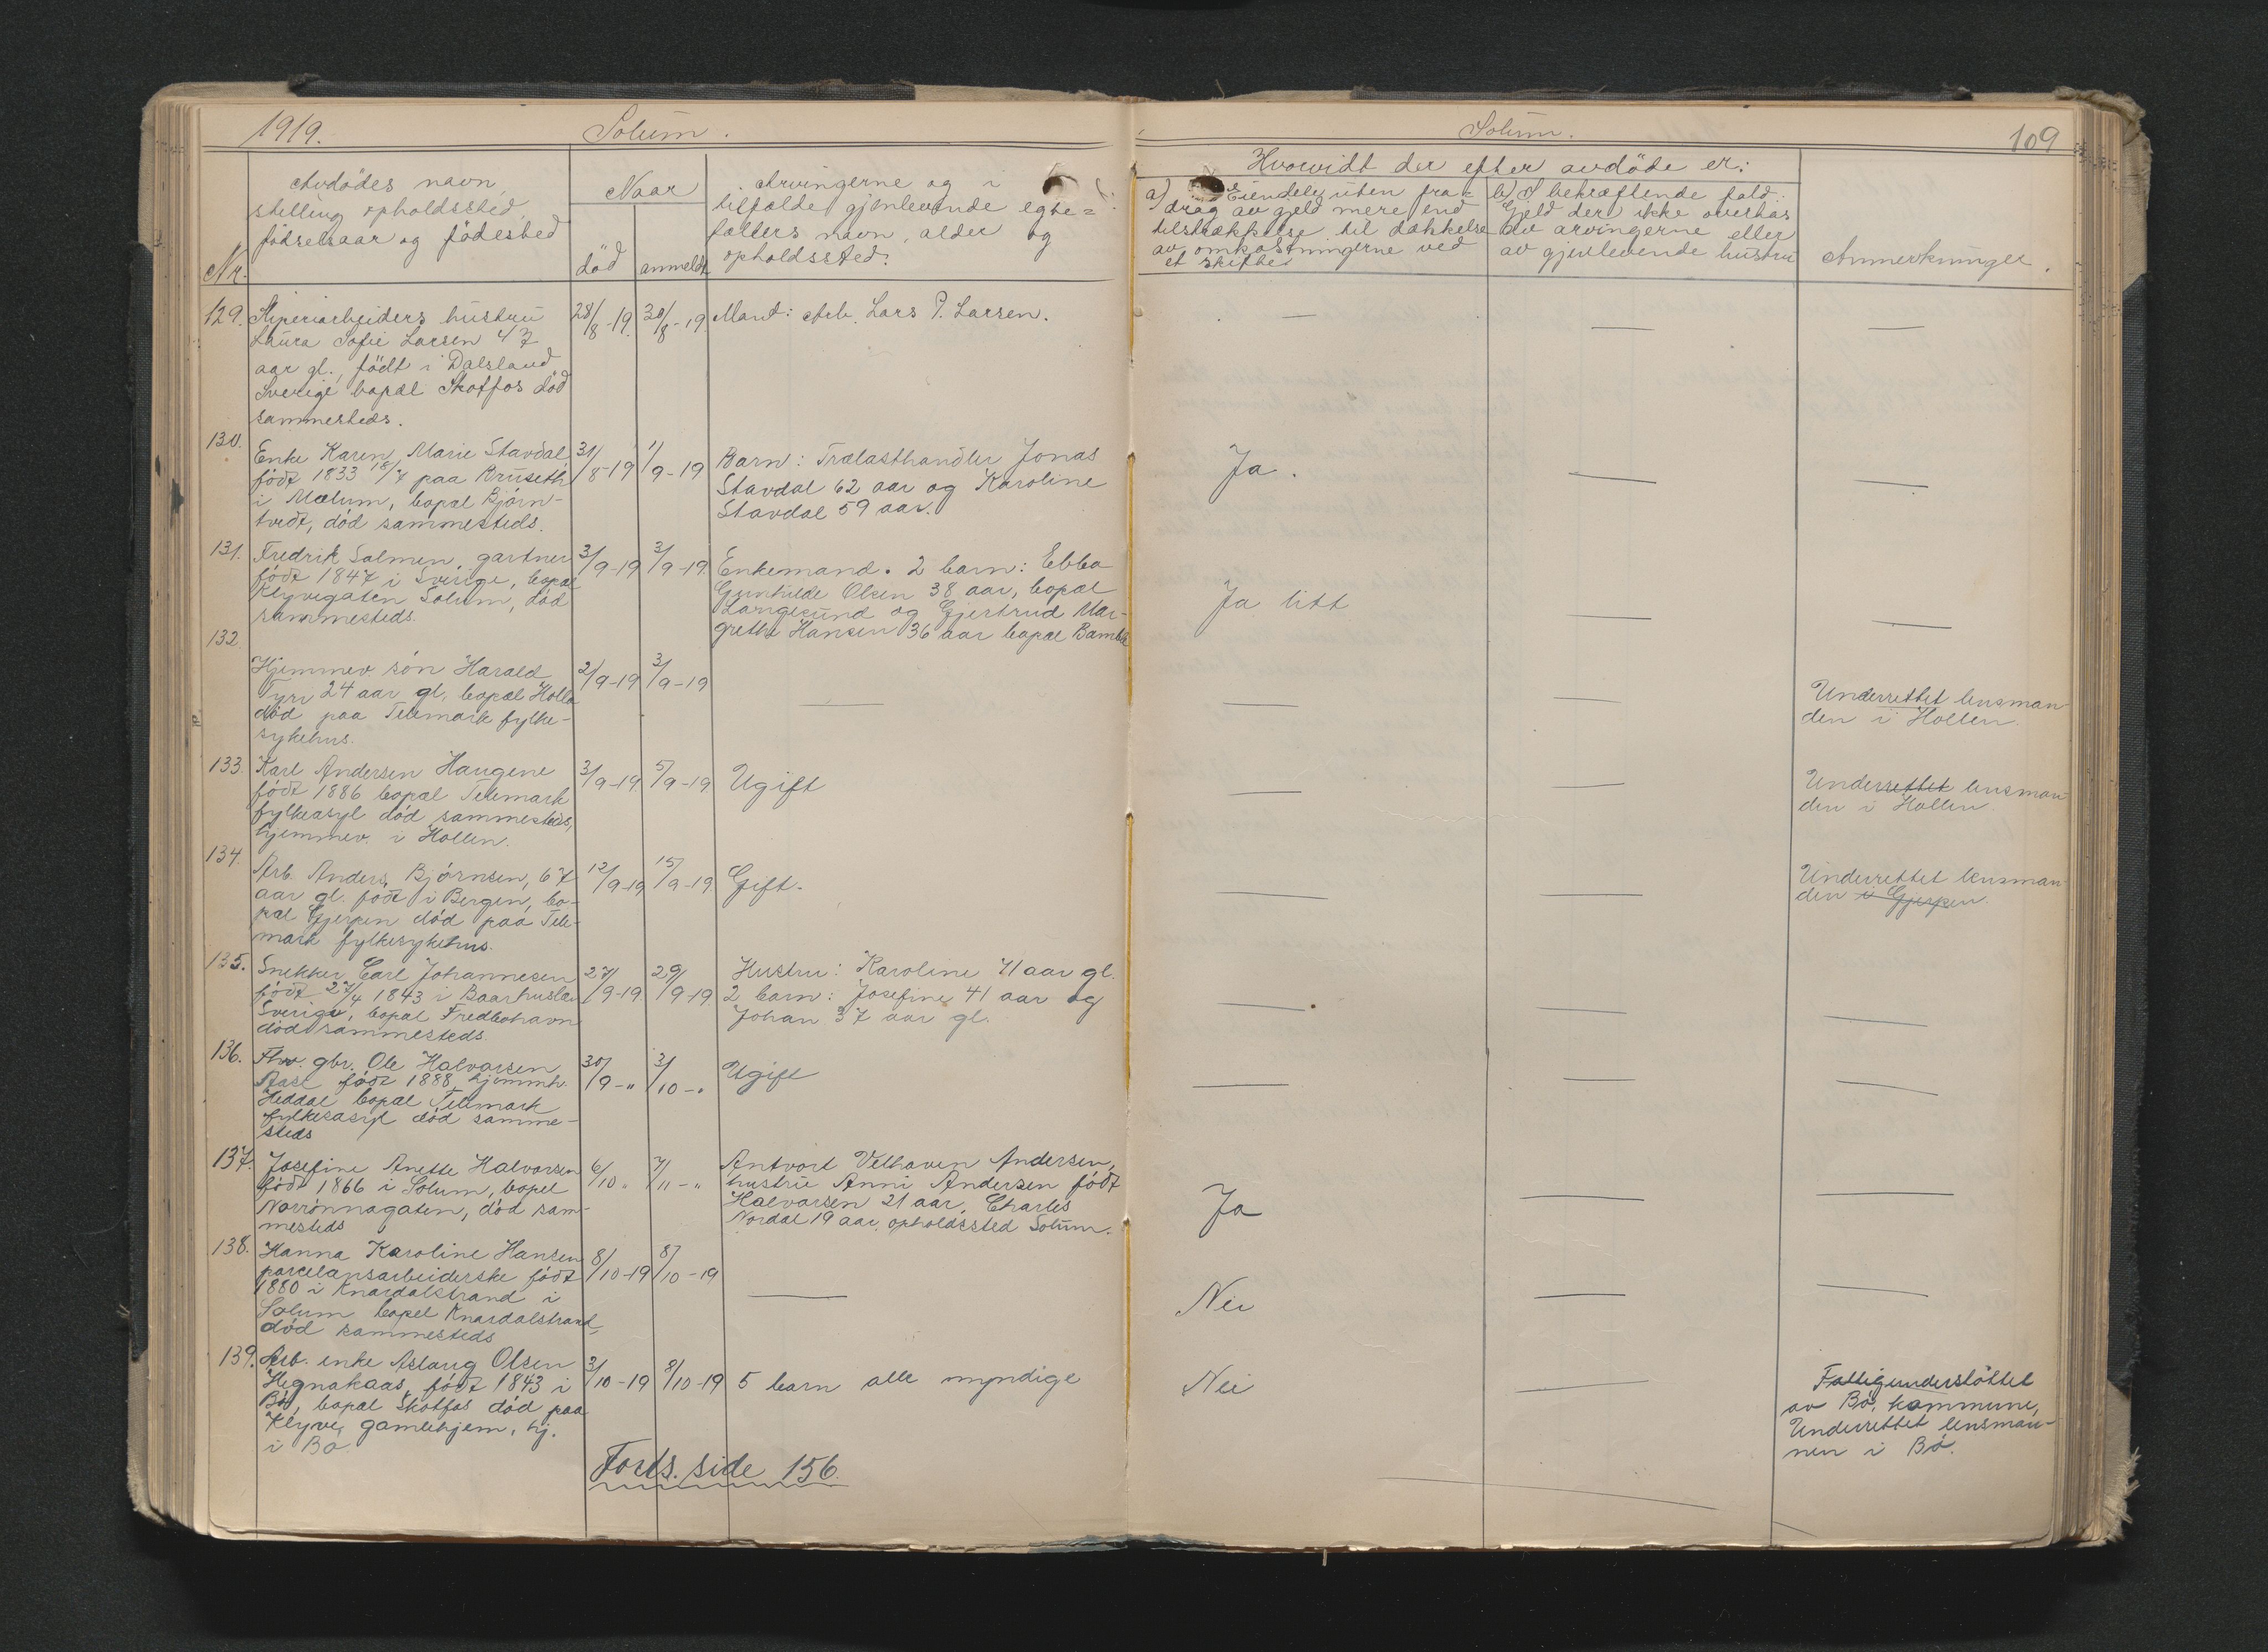 1919.
Solum.
Solum.
109
Nr.
Avdödes navn,
stilling opholdssted,
födselsaar og födested
Naar
död
anmeldt
Arvingerne og i
tilfælde gjenlevende egte=
fælters navn, alder og
opholdssted.
Hvorvidt der efter avdöde er:
a) Eiendele uten fra-
drag av gjeld mere end
tilstrækkelse til dækkelse
av omkostningerne ved
et skifte
b) I bekræftende fald
Gjeld der ikke overtas
av arvingerne eller
av gjenlevende hustru
Anmerkninger.
129.
Sliperiarbeiders hustru
Laura Sofie Larsen 47
aar gl., födt i Dalsland
Sverige bopæl Skotfos död
sammesteds.
28/8-19.
30/8-19
Mand: Arb. Lars P. Larsen.
—
—
—
130.
Enke Karen Marie Stavdal,
födt 1833 18/7 paa Kruseth
i Mælum, bopæl Björn-
tvedt, död sammesteds.
31/8-19
1/9-19
Barn: Trælasthandler Jonas
Stavdal 62 aar og Karoline
Stavdal 59 aar.
Ja.
—
—
131.
Fredrik Salmen, gartner
födt 1847 i Sverige, bopæl
Klyvegaten Solum, död
sammesteds.
3/9-19
3/9-19.
Enkemand. 2 barn: Ebba
Gunhilde Olsen 38 aar, bopæl
Langesund og Gjertrud Mar-
grethe Hansen 36 aar bopæl Bamble
Ja litt
—
—
132.
Hjemmev. sön Harald
Yri 24 aar gl, bopæl Holla
död paa Telemark fylke-
sykehus.
2/9-19
3/9-19
—
—
—
Underrettet lensman-
den i Hollen.
133.
Karl Andersen Haugene
födt 1886 bopæl Telemark
fylkeasyl död sammesteds,
hjemmev. i Hollen.
3/9-19
5/9-19
Ugift
—
—
Underrettet lensman-
den i Hollen.
134.
Arb. Anders Björnsen, 67
aar gl. födt i Bergen, bo-
pæl Gjerpen död paa Tele-
mark fylkesykehus.
12/9-19
15/9-19.
Gift.
—
—
Underrettet lensman-
den i Gjerpen.
135.
Snekker Carl Johannesen
födt 27/4 1843 i Baarhuslæn
Sverige, bopæl Fredbohavn
död sammesteds.
27/9-19.
29/9-19.
Hustru: Karoline 71 aar gl.
2 barn: Josefine 41 aar og
Johan 37 aar gl.
—
—
—
136.
Fhv. gbr. Ole Halvorsen
Aase födt 1888, hjemmh.
Heddal bopæl Telemark
fylkesasyl död samme-
steds
30/9-"
3/10-"
Ugift
—
—
—
137.
Josefine Anette Halvorsen
födt 1866 i Solum, bopel
Norrönnagaten, död sam-
mesteds
6/10 "
7/11-"
Antvort Velhaven Andersen,
hustru Anni Andersen födt
Halvorsen 21 aar, Charles
Nordal 19 aar, opholdssted Solum.
Ja
—
—
138.
Hanna Karoline Hansen
porcelansarbeiderske födt
1880 i Knardalstrand i
Solum bopel Knardalstrand,
död sammesteds
8/10-19
8/10-19
—
Nei
—
—
139.
Arb. enke Aslaug Olsen
Hegnakaas, födt 1843 i
Bö, bopæl Skotfos död paa
Klyve gamlehjem, hj.
i Bö.
3/10-19
8/10-19
5 barn alle myndige
Nei
—
Fattigunderstöttet
av Bö kommune,
Underrettet lensman-
nen i Bö.
Forts. side 156.